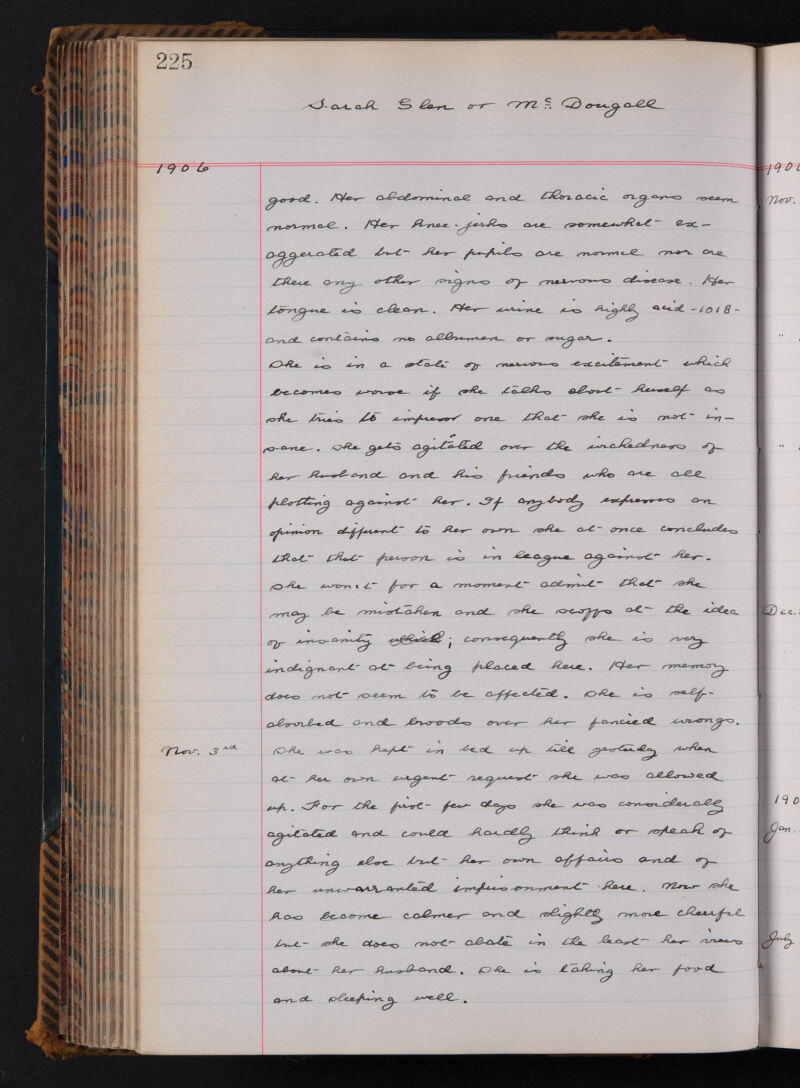 225
Sarah Glen or Mc Dougall
1906
good. Her abdominal and thoracic organs seem
normal. Her knee-jerks are somewhat ex-
aggerated but her pupils are normal nor are
there any other signs of nervous disease. Her
tongue is clean. Her urine is highly acid -1018-
and contains no albumen or sugar.
She is in a state of nervous excitement which
becomes worse if she talks about herself as
she tries to impress one that she is not in-
sane. She gets agitated over the wickedness of
her husband and his friends who are all
plotting against her. If anybody expresses an
opinion different to her own she at once concludes
that that person is in league against her.
She won't for a moment admit that she
may be mistaken and she scoffs at the idea
of insanity which; consequently she is very
indignant at being placed here. Her memory
does not seem to be affected. She is self-
absorbed and broods over her fancied wrongs.
Nov. 3rd She was kept in bed up till yesterday when
at her own urgent request she was allowed
up. For the first few days she was considerably
agitated and could hardly think or speak of
anything else but her own affairs and of
her unwarranted imprisonment here. Now she
has become calmer and slightly more cheerful
but she does not abate in the least her views
about her husband. She is taking her food
and sleeping well.
190
Nov.
"
"
Dec.
190
Jan.
July